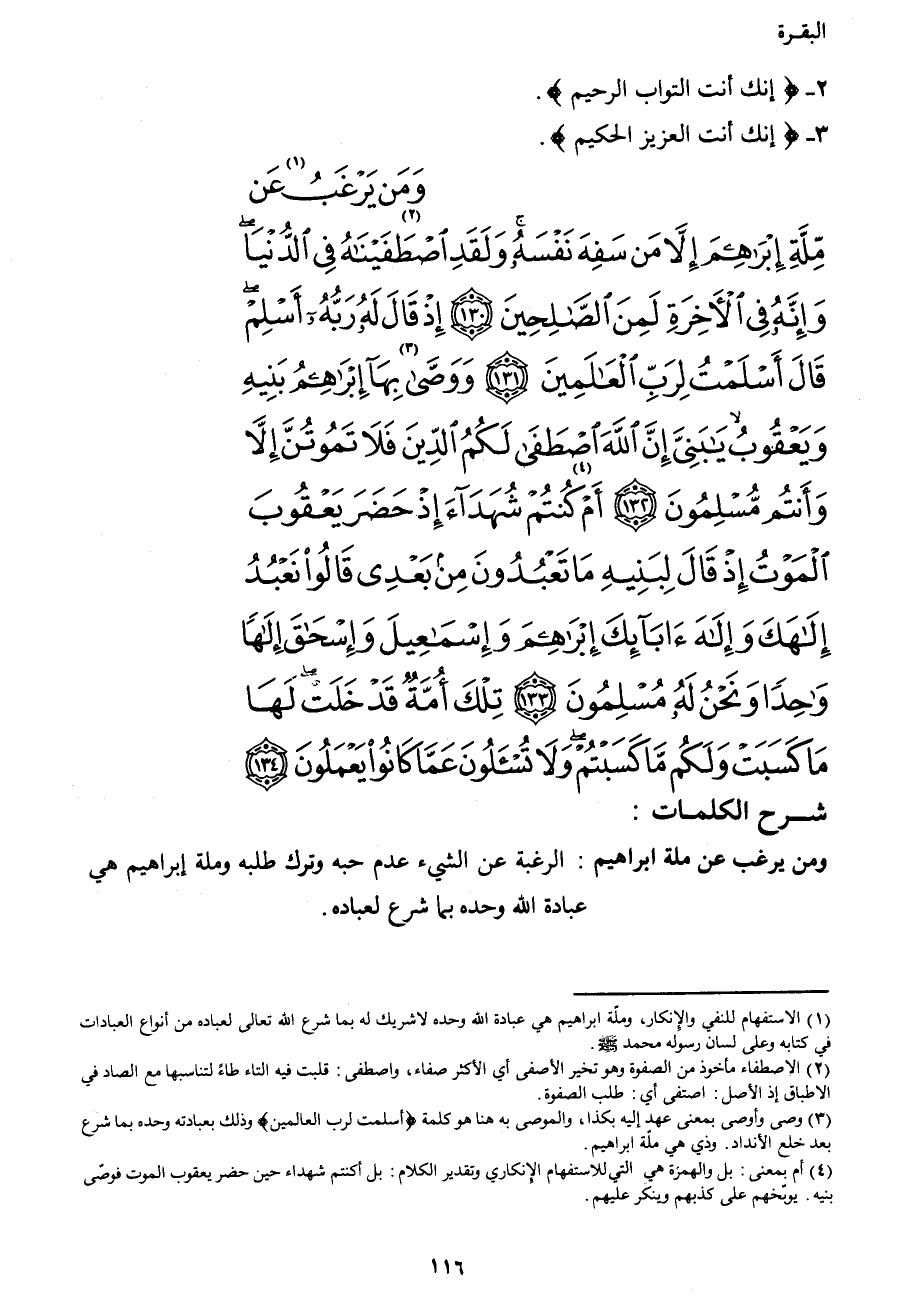 البقـرة
٢ـ ﴿ إنك أنت التواب الرحيم ﴾ .
٣ـ ﴿ إنك أنت العزيز الحكيم ﴾ .
وَمَن يَرْغَبُ عَن (١)
مِّلَّةِ إِبْرَٰهِـۧمَ إِلَّا مَن سَفِهَ نَفْسَهُۥ ۚ وَلَقَدِ ٱصْطَفَيْنَٰهُ (٢) فِى ٱلدُّنْيَا ۖ
وَإِنَّهُۥ فِى ٱلْأَخِرَةِ لَمِنَ ٱلصَّٰلِحِينَ ﴿١٣٠﴾ إِذْ قَالَ لَهُۥ رَبُّهُۥٓ أَسْلِمْ ۖ
قَالَ أَسْلَمْتُ لِرَبِّ ٱلْعَٰلَمِينَ ﴿١٣١﴾ وَوَصَّىٰ (٣) بِهَآ إِبْرَٰهِـۧمُ بَنِيهِ
وَيَعْقُوبُ ۙ يَٰبَنِىَّ إِنَّ ٱللَّهَ ٱصْطَفَىٰ لَكُمُ ٱلدِّينَ فَلَا تَمُوتُنَّ إِلَّا
وَأَنتُم مُّسْلِمُونَ ﴿١٣٢﴾ أَمْ (٤) كُنتُمْ شُهَدَآءَ إِذْ حَضَرَ يَعْقُوبَ
ٱلْمَوْتُ إِذْ قَالَ لِبَنِيهِ مَا تَعْبُدُونَ مِنۢ بَعْدِى قَالُوا۟ نَعْبُدُ
إِلَٰهَكَ وَإِلَٰهَ ءَابَآئِكَ إِبْرَٰهِـۧمَ وَإِسْمَٰعِيلَ وَإِسْحَٰقَ إِلَٰهًا
وَٰحِدًا وَنَحْنُ لَهُۥ مُسْلِمُونَ ﴿١٣٣﴾ تِلْكَ أُمَّةٌ قَدْ خَلَتْ ۖ لَهَا
مَا كَسَبَتْ وَلَكُم مَّا كَسَبْتُمْ ۖ وَلَا تُسْـَٔلُونَ عَمَّا كَانُوا۟ يَعْمَلُونَ ﴿١٣٤﴾
شـــرح الكلمـات :
ومن يرغب عن ملة ابراهيم : الرغبة عن الشيء عدم حبه وترك طلبه وملة إبراهيم هي
عبادة الله وحده بما شرع لعباده .
(١) الاستفهام للنفي والإنكار، وملّة ابراهيم هي عبادة الله وحده لاشريك له بما شرع الله تعالى لعباده من أنواع العبادات
في كتابه وعلى لسان رسوله محمد ﷺ .
(٢) الاصطفاء مأخوذ من الصفوة وهو تخير الأصفى أي الأكثر صفاء، واصطفى : قلبت فيه التاء طاءً لتناسبها مع الصاد في
الاطباق إذ الأصل : اصتفى أي : طلب الصفوة .
(٣) وصى وأوصى بمعنى عهد إليه بكذا، والموصى به هنا هو كلمة ﴿أسلمت لرب العالمين﴾ وذلك بعبادته وحده بما شرع
بعد خلع الأنداد. وذي هي ملّة ابراهيم .
(٤) أم بمعنى : بل والهمزة هي التي للاستفهام الإنكاري وتقدير الكلام : بل أكنتم شهداء حين حضر يعقوب الموت فوصّى
بنيه . يوبّخهم على كذبهم وينكر عليهم .
١١٦